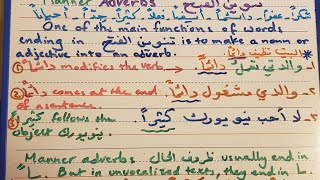 Manner Adverbs تنوين الفتح
شكراً - عفواً - دائماً - أيضاً - فعلاً - كثيراً - جداً - أحياناً
One of the main functions of words
ending in تنوين الفتح is to make a noun or
adjective into an adverb.
① دائماً modifies the verb
١- والدتي تعمل دائماً
② دائماً comes at the end
of a sentence.
٢- والدي مشغول دائماً
③ كثيراً follows the
object نيويورك
٣- لا أحب نيويورك كثيراً
Manner adverbs ظروف الحال usually end in
But in unvocalized texts, they end in